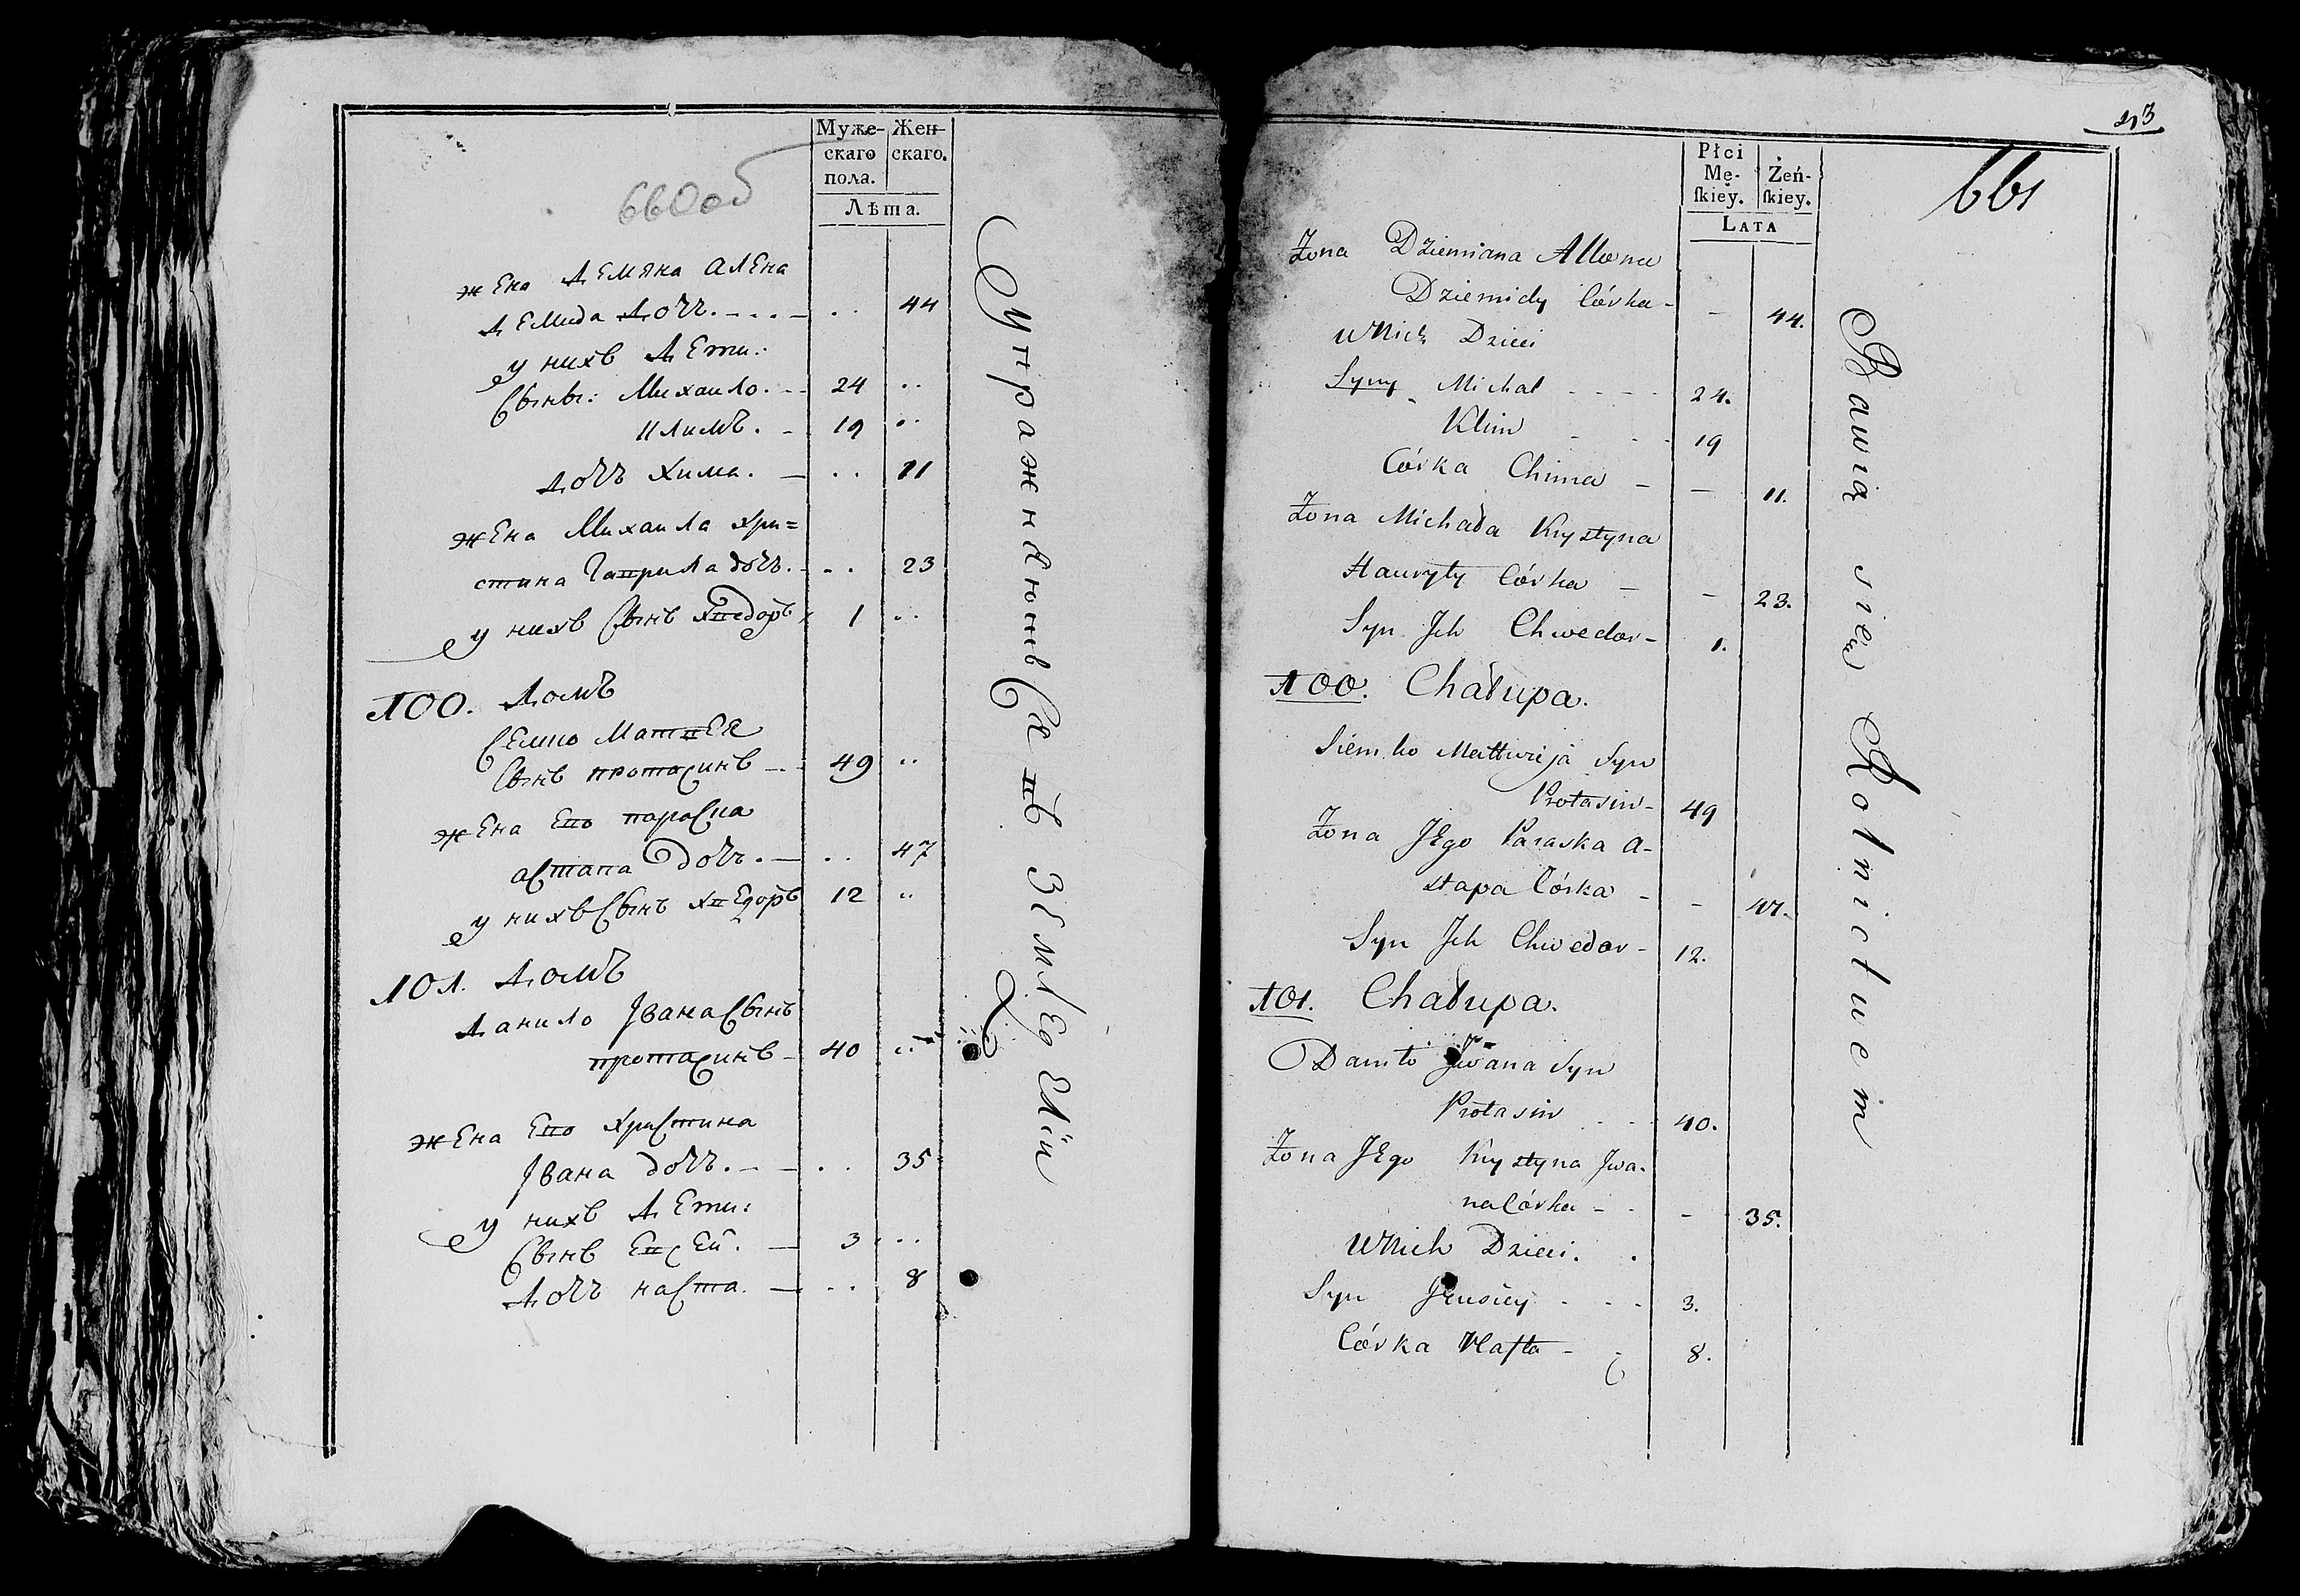 660об
Муже-
скаго
пола.
Жен-
скаго.
Лѣта.
жена Демяна Алена
Демида дочь. - - - - .. 44
у нихъ Дети:
Сыны: Михайло. - - 24 ..
Климъ. - 19 ..
дочь Хима. - .. 11
жена Михайла Хри=
стина Гаврила дочь. - .. 23
у нихъ Сынъ Хведоръ 1 ..
100. Домъ
Семко Матвея
Сынъ Протасинъ - - 49 ..
жена Его Параска
Астапа дочь. - .. 47
у нихъ Сынъ Хведоръ 12 ..
101. Домъ
Данило Iвана Сынъ
Протасинъ - 40 ..
жена Его Христина
Iвана дочь. - - .. 35
у нихъ Дети:
Сынъ Евсей. - 3 ..
Дочь Наста. - .. 8
Упражняютъся въ Земледелiи
43
661
Płci
Mę-
ſkiey.
Żeń-
ſkiey.
LATA
Żona Dziemiana Allena
Dziemidy Córka - - 44.
U Nich Dzieci
Syny Michał - - - - 24.
Klim - - - 19
Córka Chima - - 11.
Żona Michała Krystyna
Hauryły Córka - - 23.
Syn Jch Chwedor - 1.
100. Chałupa.
Siemko Mattwieja Syn
Protasin - 49
Żona JEgo Paraska A-
stapa Córka - - 47.
Syn Jch Chwedor - 12.
101. Chałupa.
Daniło Jwana Syn
Protasin - - - 40.
Żona JEgo Krystyna Jwa-
na Córka - - - 35.
U Nich Dzieci.
Syn Jeusiey - - - 3.
Córka Naſta - - 8.
Bawią się Rolnictwem